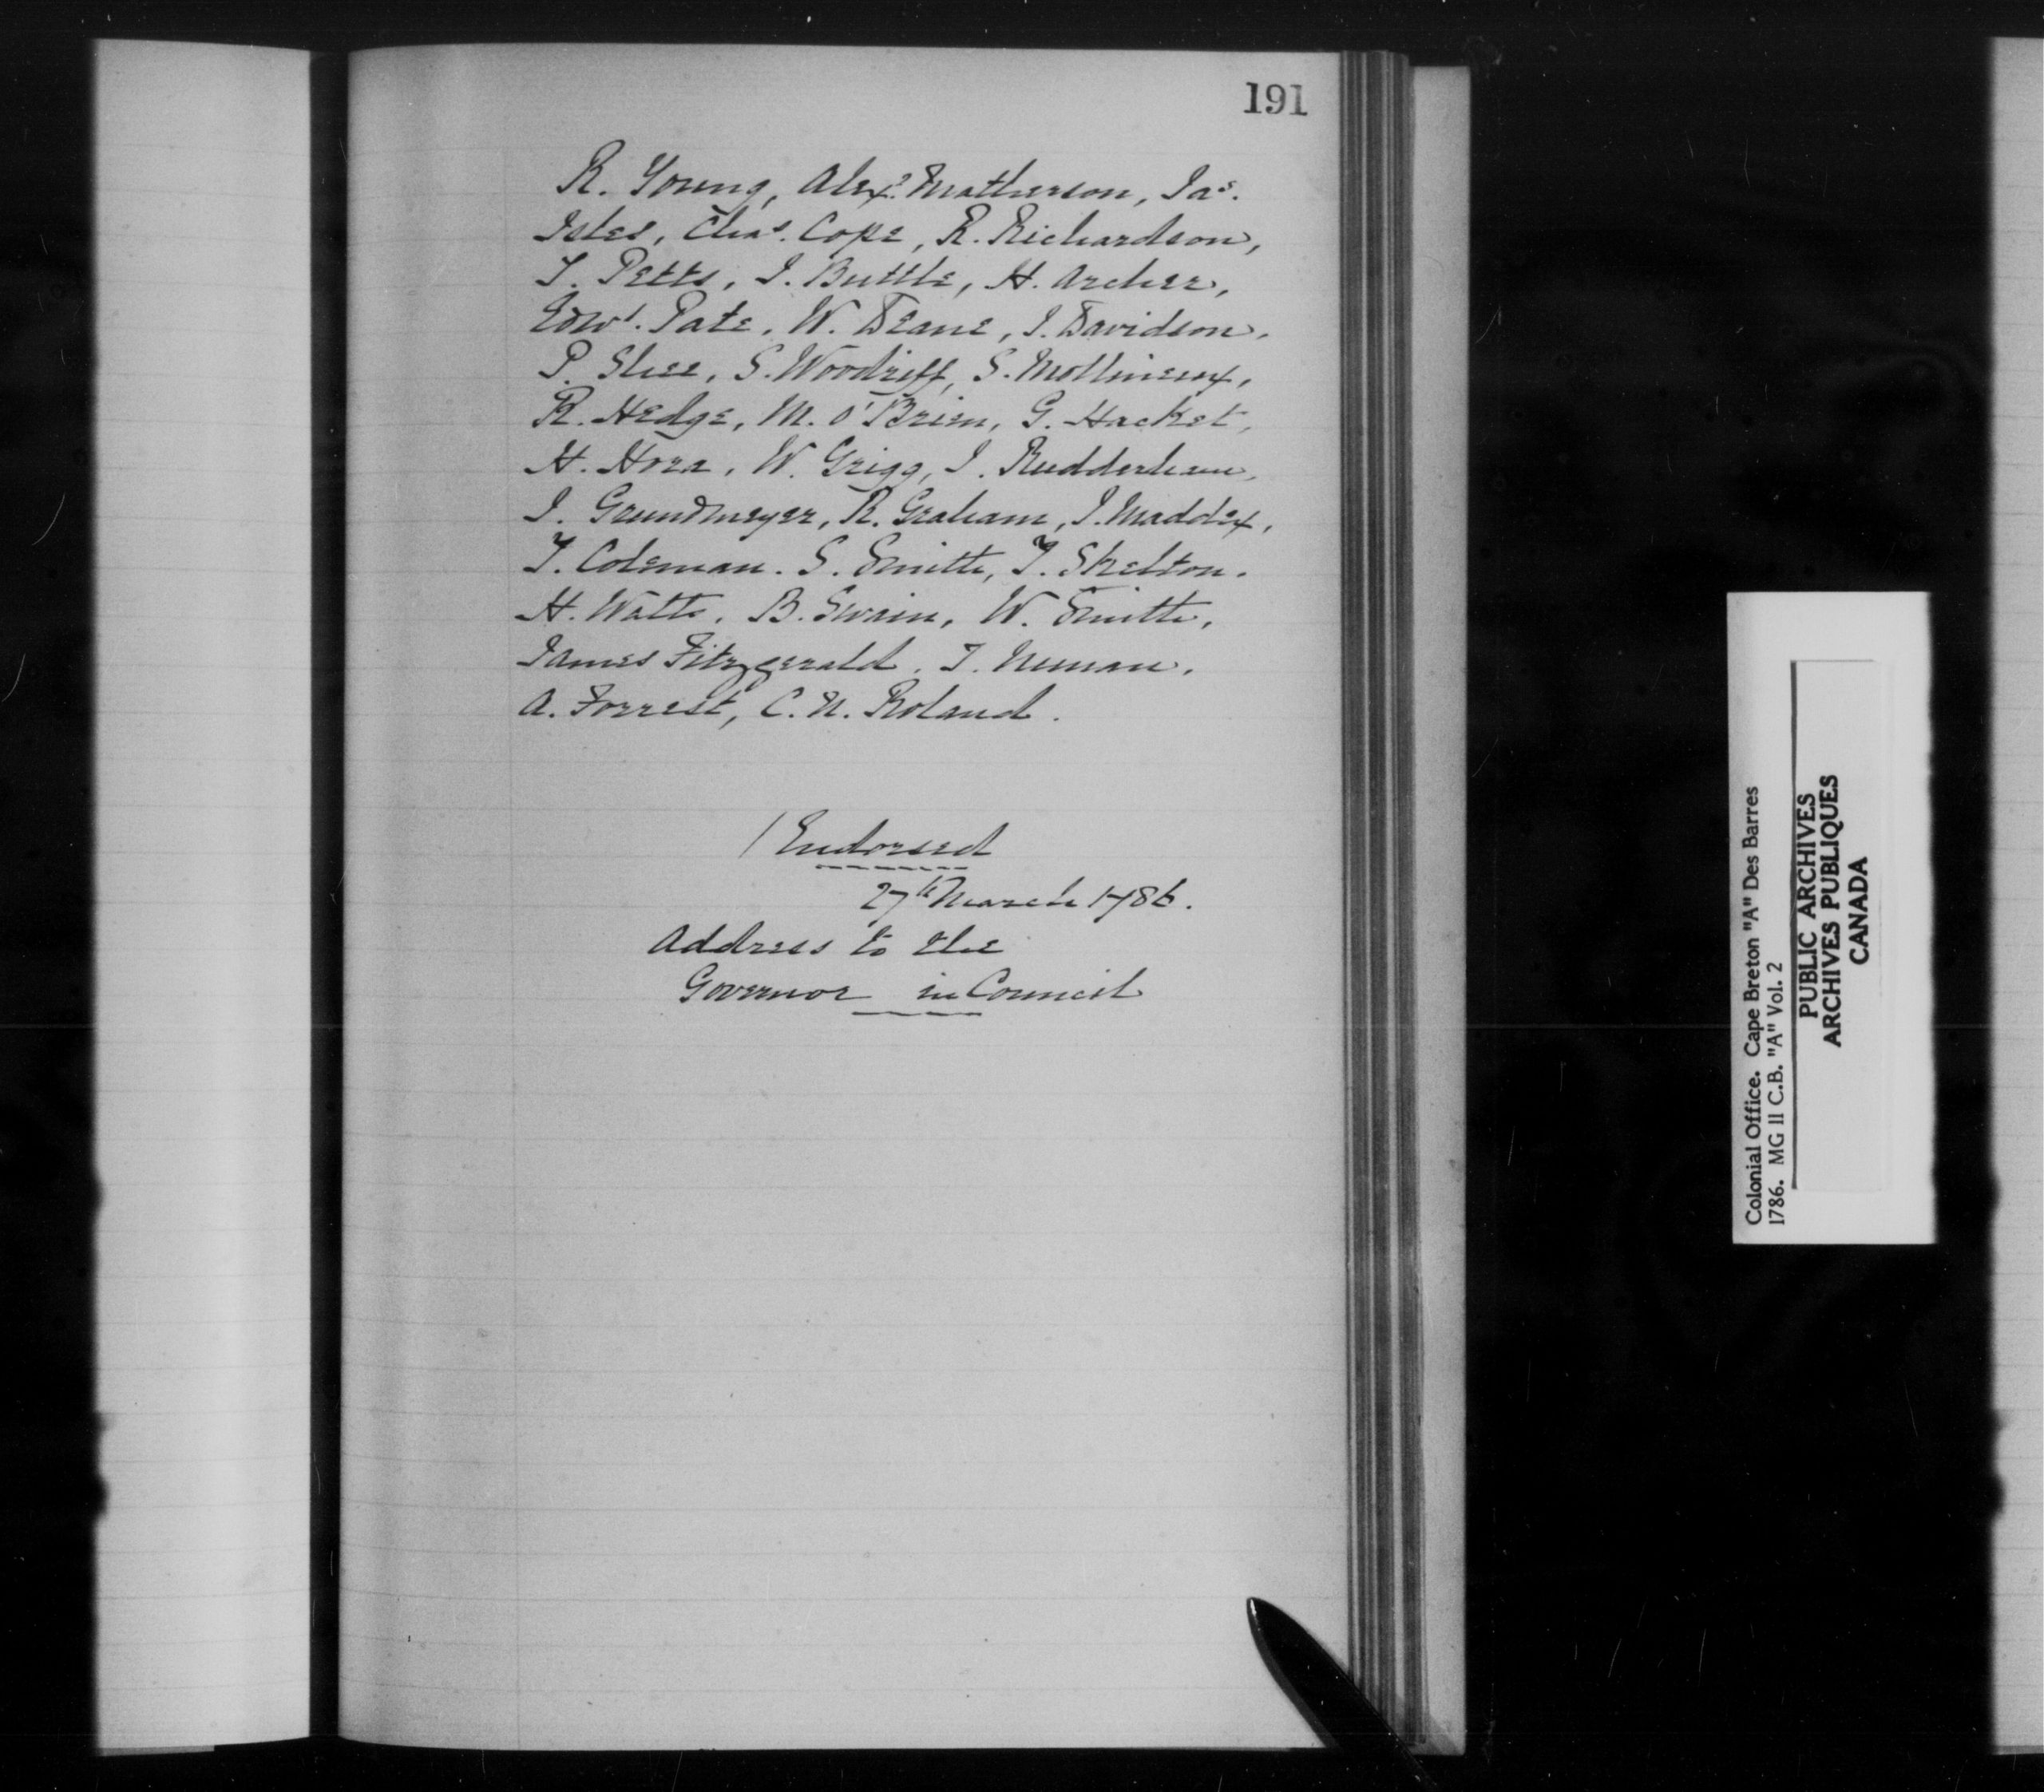 191
R. Young, Alexr. Matherson, Jas.
Isles, Chas. Cope, R. Richardson,
T. Petts, J. Buttle, H. Archer,
Edwd. Pate, W. Deane, J. Davidson,
P. Slee, S. Woodriff, S. Mollineux,
R. Hedge, M. O'Brien, G. Hacket,
H. Hora, W. Grigg, J. Rudderham,
J. Grundmeyer, R. Graham, J. Maddox,
T. Coleman. S. Smith, T. Skelton.
H. Watts, B. Swain, W. Smith,
James Fitzgerald, T. Numan.
A. Forrest, C. N. Roland.
/ Endorsed
27th March 1786.
Address to the
Governor in Council
Colonial Office. Cape Breton "A" Des Barres
1786. MG 11 C.B. "A" Vol. 2
PUBLIC ARCHIVES
ARCHIVES PUBLIQUES
CANADA